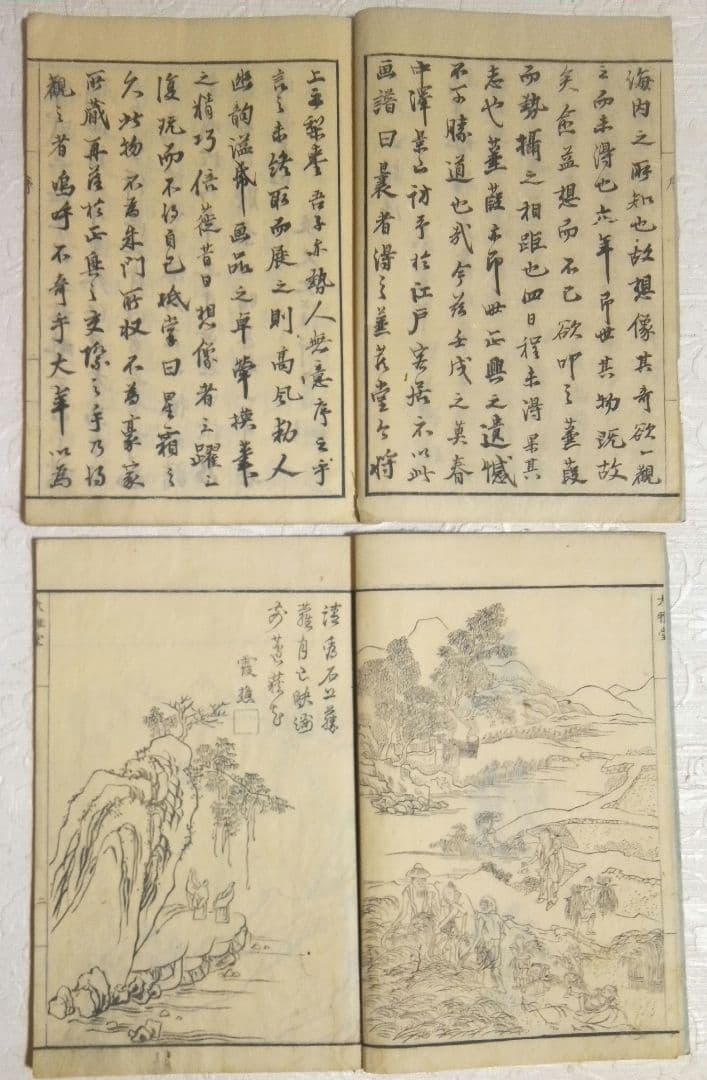 序
海内之所知也故想像其奇欲一觀
之而未得也六年即世其物既故
矣愈益想而不已欲叩之蒹葭
而勢攝之相距也四日程未得果其
志也蒹葭亦即世正興之遺憾
不可勝道也哉今茲壬戌之莫春
中澤 訪予於江戸客居示以此
画譜曰曩者得之蒹葭堂今將
上于梨棗吾子亦勢人無意序之乎
言之未終取而展之則高風動人
幽韻溢 画品之卓犖摸筆
之精巧倍蓰昔日想像者三躍三
復玩而不得自已抵掌曰星霜之
久此物不為朱門所収不為豪家
所藏再落於正興之交際之手乃得
觀之者嗚呼不奇乎大年以為
序
大雅堂
請看石上藤
蘿月已映洲
前蘆荻花
霞樵
大雅堂